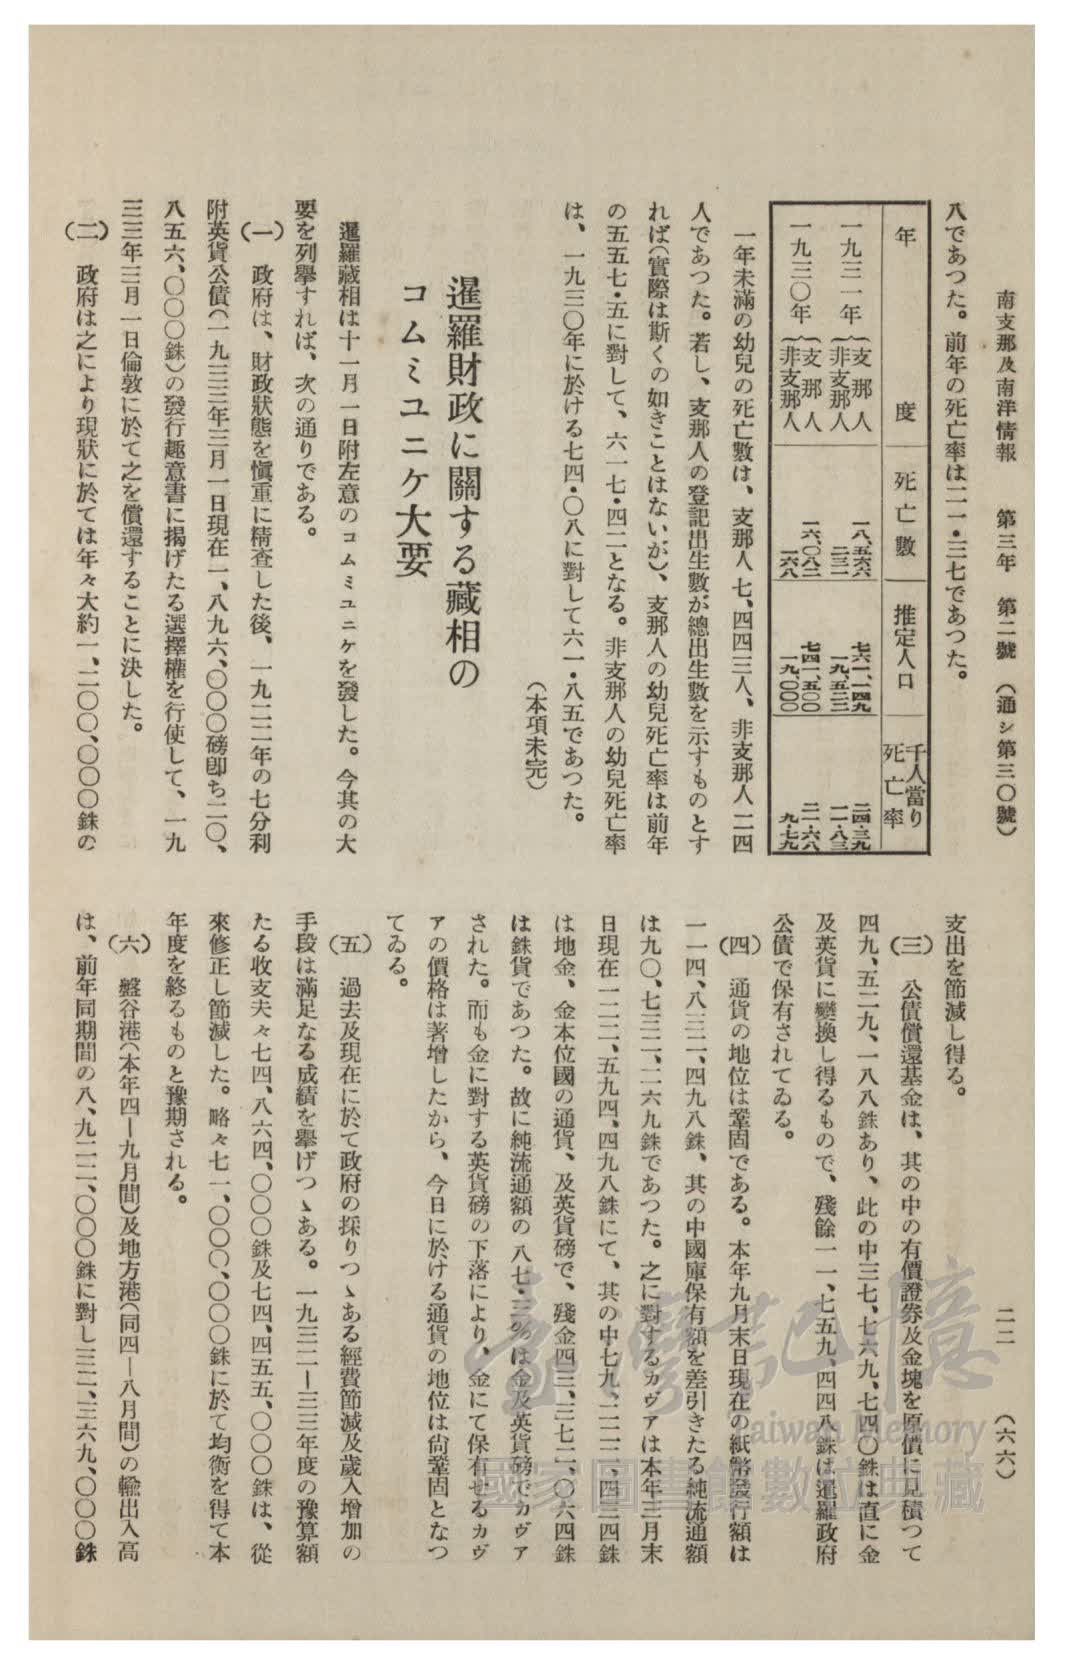 南支那及南洋情報　第三年　第二號　（通シ第三〇號）
二二　（六六）
八であつた。前年の死亡率は二一・三七であつた。
年度　死亡數　推定人口　千人當り死亡率
一九三一年｛支那人　一八、五六六　七六一、一四九　二四・三九
非支那人　二三一　一九、五二二　一一・八三
一九三〇年｛支那人　一六、〇八二　七四一、五〇〇　二一・六八
非支那人　一六八　一九、〇〇〇　九・七九
一年未滿の幼兒の死亡數は、支那人七、四四三人、非支那人二四
人であつた。若し、支那人の登記出生數が總出生數を示すものとす
れば（實際は斯くの如きことはないが）、支那人の幼兒死亡率は前年
の五五七・五に對して、六一七・四二となる。非支那人の幼兒死亡率
は、一九三〇年に於ける七四・〇八に對して六一・八五であつた。
（本項未完）
暹羅財政に關する藏相の
コムミユニケ大要
暹羅藏相は十一月一日附左意のコムミユニケを發した。今其の大
要を列擧すれば、次の通りである。
（一）　政府は、財政狀態を愼重に精査した後、一九二二年の七分利
附英貨公債（一九三三年三月一日現在一、八九六、〇〇〇磅卽ち二〇、
八五六、〇〇〇銖）の發行趣意書に揭げたる選擇權を行使して、一九
三三年三月一日倫敦に於て之を償還することに決した。
（二）　政府は之により現狀に於ては年々大約一、二〇〇、〇〇〇銖の
支出を節減し得る。
（三）　公債償還基金は、其の中の有價證券及金塊を原價に見積つて
四九、五二九、一八八銖あり、此の中三七、七六九、七四〇銖は直に金
及英貨に變換し得るもので、殘餘一一、七五九、四四八銖は暹羅政府
公債で保有されてゐる。
（四）　通貨の地位は鞏固である。本年九月末日現在の紙幣發行額は
一一四、八三二、四九八銖、其の中國庫保有額を差引きたる純流通額
は九〇、七三二、二六九銖であつた。之に對するカヴァは本年三月末
日現在一二二、五九四、四九八銖にて、其の中七九、二二二、四三四銖
は地金、金本位國の通貨、及英貨磅で、殘金四三、三七二、〇六四銖
は銖貨であつた。故に純流通額の八七・三％は金及英貨磅でカヴァ
された。而も金に對する英貨磅の下落により、金にて保有せるカヴ
アの價格は著增したから、今日に於ける通貨の地位は尙鞏固となつ
てゐる。
（五）　過去及現在に於て政府の採りつゝある經費節減及歲入增加の
手段は滿足なる成績を擧げつゝある。一九三二ー三三年度の豫算額
たる收支夫々七四、八六四、〇〇〇銖及七四、四五五、〇〇〇銖は、從
來修正し節減した。略々七一、〇〇〇、〇〇〇銖に於て均衡を得て本
年度を終るものと豫期される。
（六）　盤谷港（本年四ー九月間）及地方港（同四ー八月間）の輸出入高
は、前年同期間の八、九二二、〇〇〇銖に對し三二、三六九、〇〇〇銖
臺灣記憶
Taiwan Memory
國家圖書館數位典藏